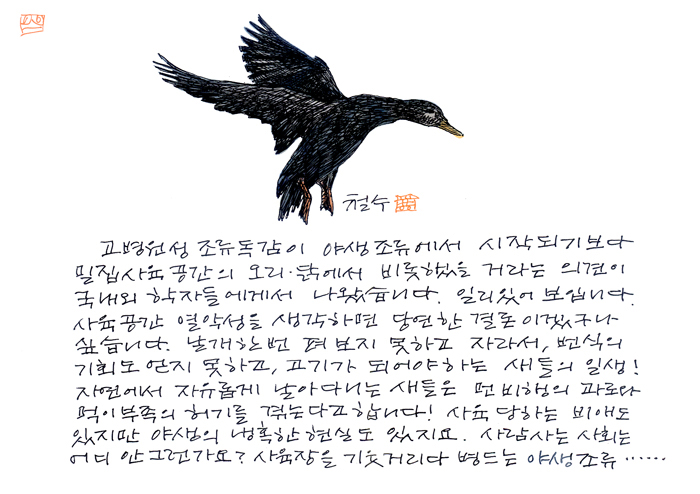 철수
고병원성 조류독감이 야생조류에서 시작되기보다
밀집사육공간의 오리·닭에서 비롯했을 거라는 의견이
국내외 학자들에게서 나왔습니다. 일리있어 보입니다.
사육공간 열악성을 생각하면 당연한 결론이겠구나
싶습니다. 날개 한번 펴 보지 못하고 자라서, 번식의
기회도 얻지 못하고, 고기가 되어야 하는 새들의 일생!
자연에서 자유롭게 날아다니는 새들은 먼 비행의 과로와
먹이부족의 허기를 겪는다고 합니다! 사육 당하는 비애도
있지만 야생의 냉혹한 현실도 있지요. 사람사는 사회는
어디 안그런가요? 사육장을 기웃거리다 병드는 야생조류……